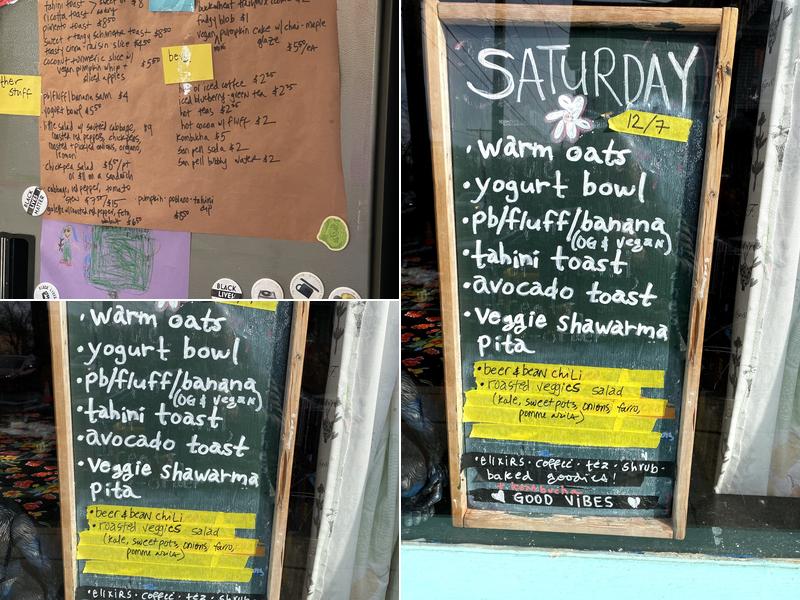 tahini toast
ricotta toast
pimento toast $8.50
sweet + tangy schmada toast $8.50
toasty cinn-raisin slice $4.50
coconut-turmeric slice w/
vegan pumpkin whip +
sliced apples
$5.50
buckwheat
fudgy blob $1
vegan pumpkin cake w/ chai-maple
mini
glaze $5.50/ea
bev
other
stuff
pb/fluff/banana sam $4
yogurt bowl $5.50
little salad w/ sauteed cabbage, $9
roasted red peppers, chickpeas,
roasted + pickled onions, oregano,
lemon
chickpea salad $6.50/pt
or $11 on a sandwich
cabbage, red pepper, tomato
stew $7.50/$15
galette w/ roasted red pepper, feta,
walnut $6.50
pumpkin-poblano-tahini
dip
$8.50
hot or iced coffee $2.75
iced blueberry-green tea $2.75
hot teas $2.50
hot cocoa w/ fluff $2
kombucha $5
san pell soda $2
san pell bubbly water $2
BLACK
LIVES
MATTER
BLACK
LIVES
SATURDAY
12/7
• warm oats
• yogurt bowl
• pb/fluff/banana
(OG & vegan)
• tahini toast
• avocado toast
• veggie shawarma
pita
• beer & bean chili
• roasted veggies salad
(kale, sweet pots, onions, farro,
pomme
• elixirs • coffee • tea • shrub •
baked goodies!
+ kombucha
GOOD VIBES
• warm oats
• yogurt bowl
• pb/fluff/banana
(OG & vegan)
• tahini toast
• avocado toast
• veggie shawarma
pita
• beer & bean chili
• roasted veggies salad
(kale, sweet pots, onions, farro,
pomme
• elixirs • coffee • tea • shrub